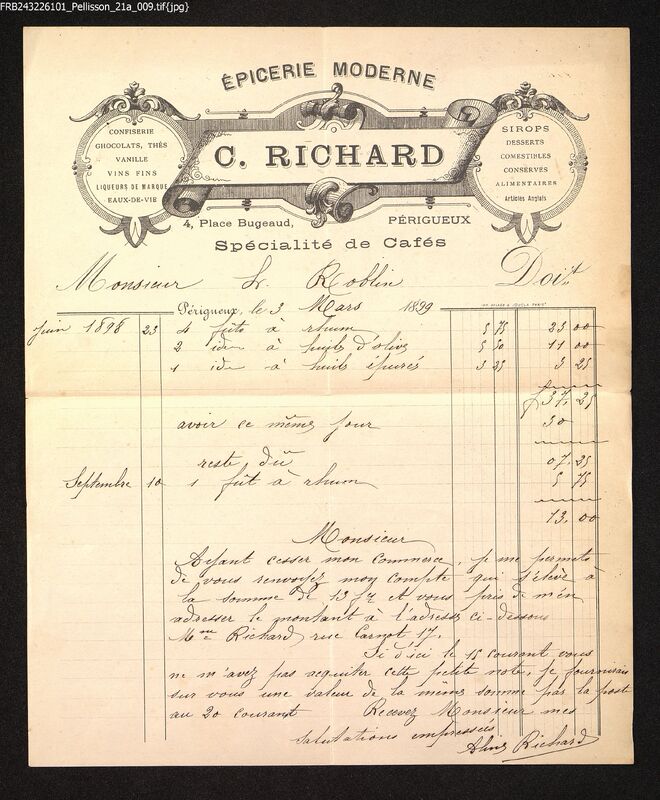 FRB243226101_Pellisson_21a_009.tif{jpg}
ÉPICERIE MODERNE
CONFISERIE
CHOCOLATS, THÉS
VANILLE
VINS FINS
LIQUEURS DE MARQUE
EAUX-DE-VIE
C. RICHARD
SIROPS
DESSERTS
COMESTIBLES
CONSERVES
ALIMENTAIRES
Articles Anglais
4, Place Bugeaud, PÉRIGUEUX
Spécialité de Cafés
Monsieur Roblin Doit
Périgueux, le 3 Mars 1899
Juin 1898 23 4 fûts à rhum 5 75 23 00
2 id à huile d'olive 5 50 11 00
1 id à huile épurés 3 25 3 25
37,25
avoir ce même jour 30
reste dû 07,25
Septembre 10 1 fût à rhum 5 75
13,00
Monsieur
Ayant cesser mon commerce, je me permets
de vous renvoyez mon compte qui s'élève à
la somme de 13 f et vous prie de m'en
adresser le montant à l'adresse ci-dessous
Mme Richard rue Carnot 17.
Si d'ici le 15 courant vous
ne m'avez pas acquiter cette petite note, je fournirais
sur vous une valeur de la même somme par la poste
au 20 courant Recevez Monsieur mes
salutations empressées
Richard